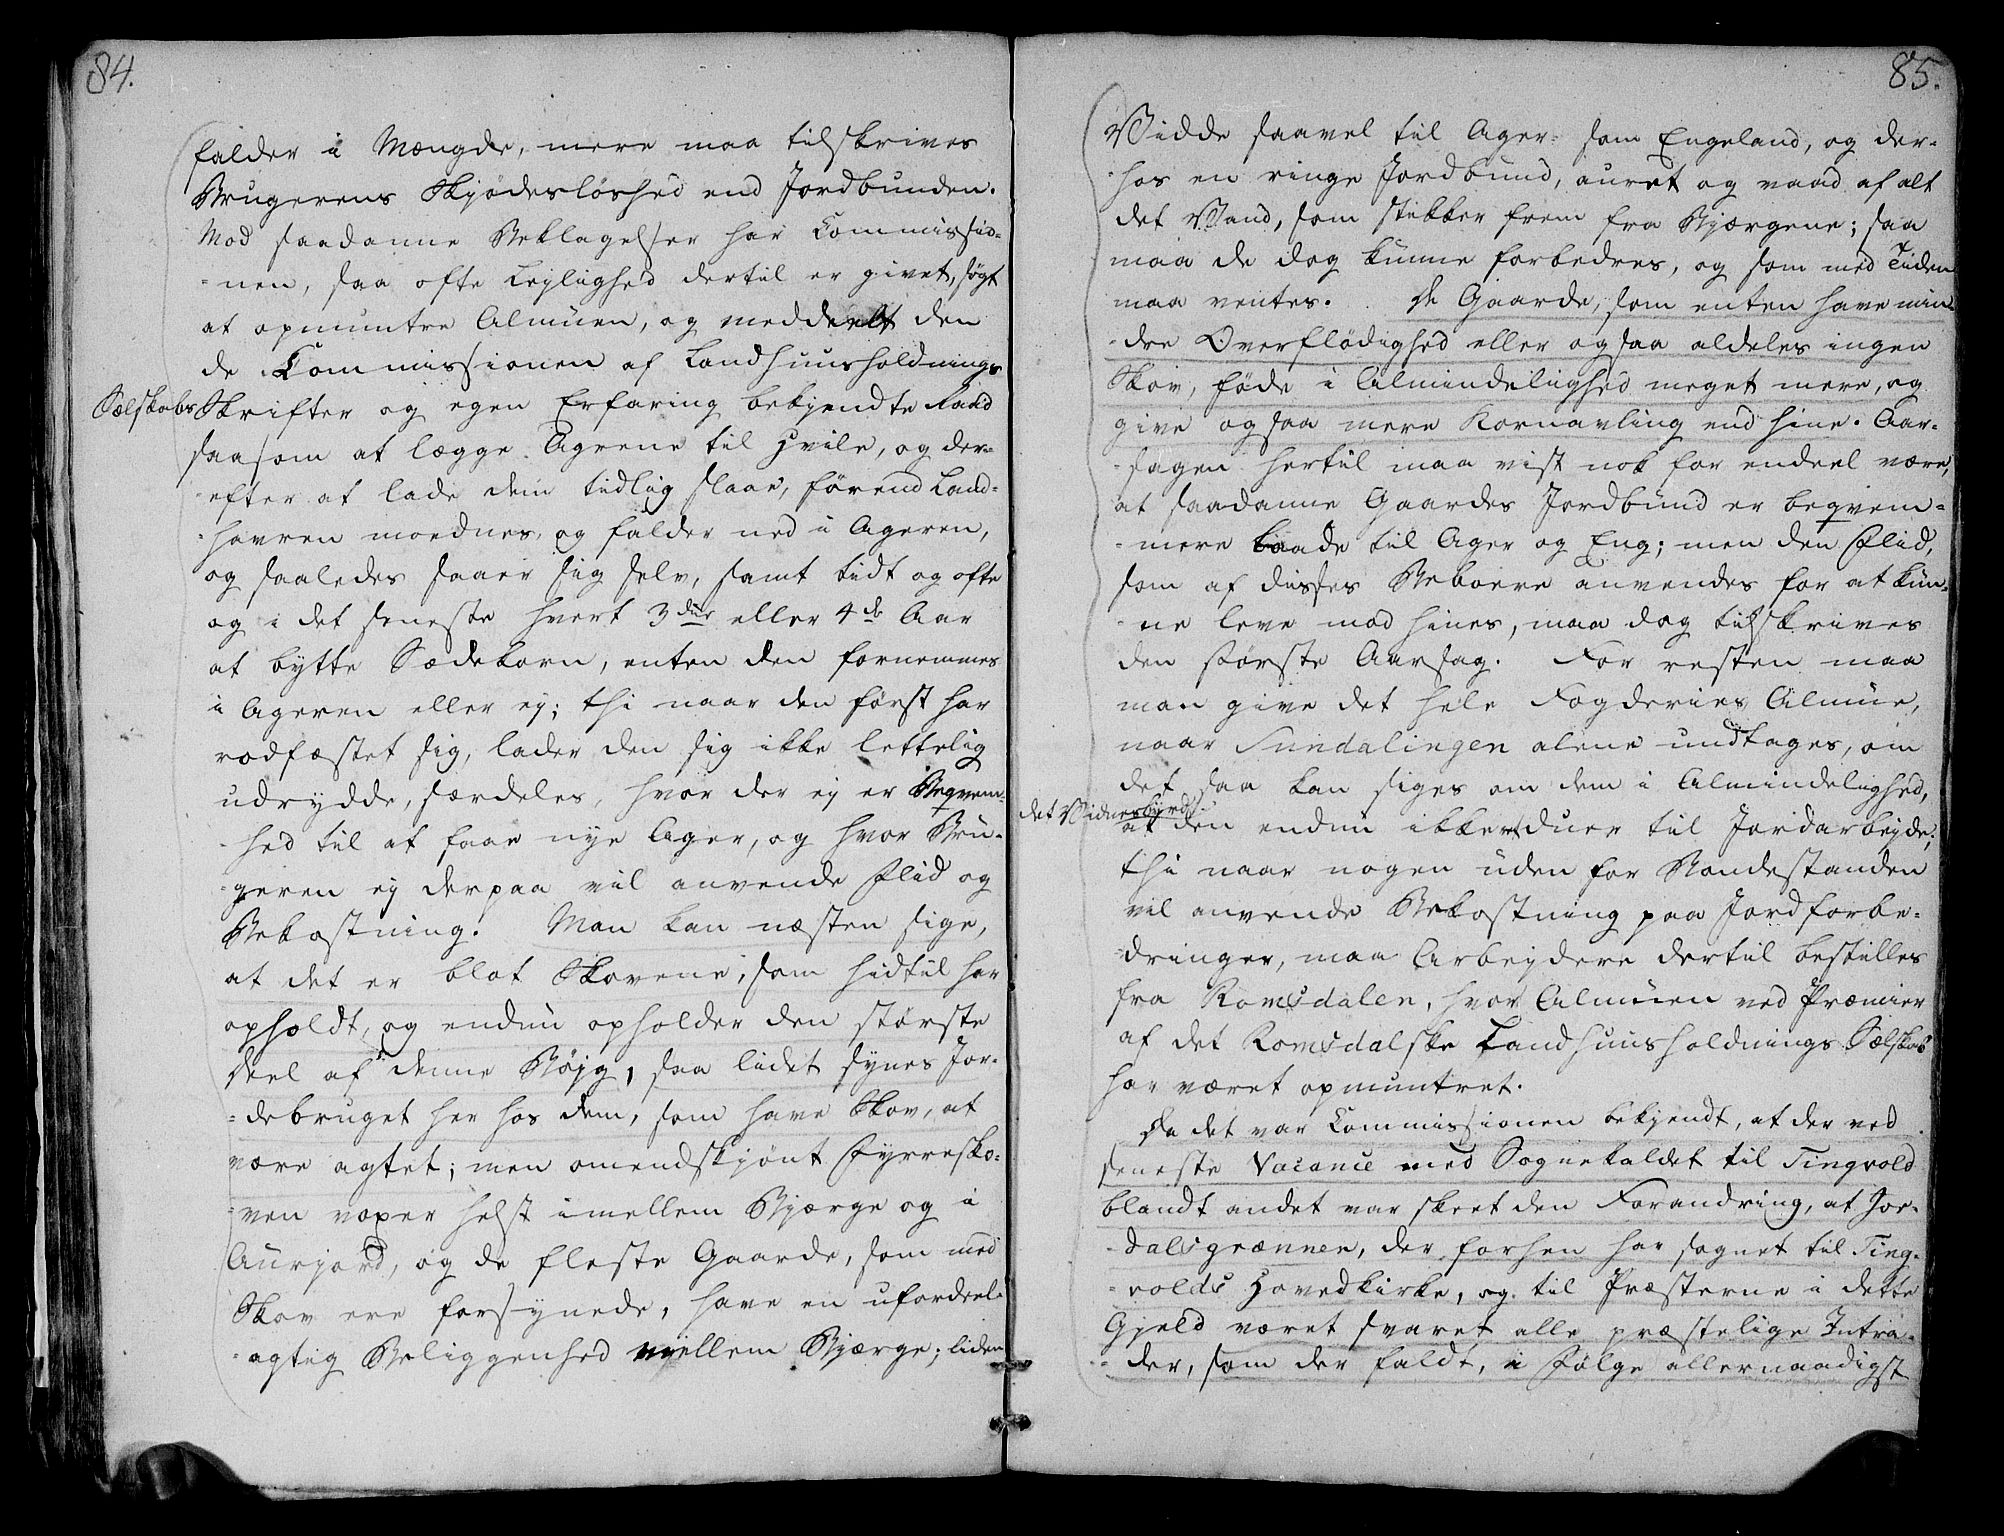 84.
falder i Mængde, mere maa tilskrives
Brugerens Skjødesløshed end Jordbunden.
Mod saadanne Beklagelser har Commissio-
-nen, saa ofte Lejlighed dertil er givet, søgt
at opmuntre Almuen, og meddeelt den
de Commissionen af Landhuusholdnings
Sælskabs Skrifter og egen Erfaring bekjendte Raad
saasom at lægge Agrene til Hvile, og der-
-efter at lade dem tidlig slaae, førend Land-
-havren modnes, og falder ned i Ageren,
og saaledes saaer sig selv, samt tidt og ofte
og i det seneste hvert 3die eller 4de Aar
at bytte Sædekorn, enten den fornemmes
i Ageren eller ej; thi naar den først har
rodfæstet sig, lader den sig ikke lettelig
udrydde, særdeles, hvor der ej er Beqvem-
-hed til at faae nye Ager, og hvor Bru-
-geren ej derpaa vil anvende Flid og
Bekostning. Man kan næsten sige,
at det er blot Skovene, som hidtil har
opholdt, og endnu opholder den største
Deel af denne Bøjg, saa lidet synes Jor-
-debruget her hos dem, som have Skov, at
være agtet; men omendskjønt Fyrresko-
-ven voxer helst imellem Bjærge og i
Aurjord, og de fleste Gaarde, som med
Skov ere forsynede, have en ufordeel-
-agtig Beliggenhed mellem Bjærge; liden
85.
Vidde saavel til Ager- som Engeland, og der-
-hos en ringe Jordbund, auret og vaad af alt
det Vand, som stikker frem fra Bjærgene; saa
maa de dog kunne forbedres, og som med Tiden
maa ventes. De Gaarde, som enten have min-
-dre Overflødighed eller ogsaa aldeles ingen
Skov, føde i Almindelighed meget mere, og
give ogsaa mere Kornavling end hine. Aar-
-sagen hertil maa vist nok for endeel være,
at saadanne Gaardes Jordbund er beqvem-
-mere baade til Ager og Eng; men den Flid,
som af disses Beboere anvendes for at kun-
-ne leve mod hines, maa dog tilskrives
den største Aarsag. For resten maa
man give det hele Fogderies Almue,
naar Sundalingen alene undtages, om
det saa kan siges om dem i Almindelighed,
det Vidnesbyrd
at den endnu ikke duer til Jordarbejde;
thi naar nogen uden for Bondestanden
vil anvende Bekostning paa Jordforbe-
-dringer, maa Arbejdere dertil bestilles
fra Romsdalen, hvor Almuen ved Præmier
af det Romsdalske Landhuusholdnings Sælskab
har været opmuntret.
Da det var Commissionen bekjendt, at der ved
seneste Vacance med Sognekaldet til Tingvold
blandt andet var skeet den Forandring, at Jor-
-dalsgrænnen, der forhen har sognet til Ting-
-volds Hovedkirke, og til Præsterne i dette
Gjeld været svaret alle præstelige Intra-
-der, som der faldt, i Følge allernaadigst